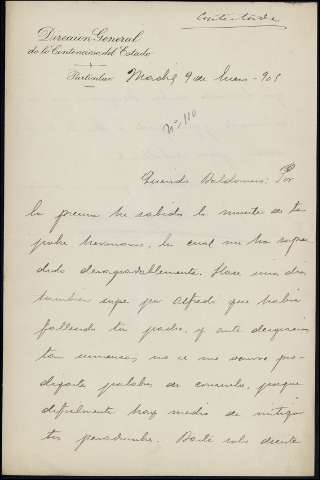 Contestada
Dirección General
de lo Contencioso del Estado
Particular Madrid 9 de Enero - 905
Nº 110
Querido Baldomero: Por
la prensa he sabido la muerte de tu
pobre hermano, la cual me ha sorpren
dido desagradablemente. Hace unos días
tambien supe por Alfredo que había
fallecido tu padre, y ante desgracias
tan inmensas no se me ocurre pro-
digarte palabras de consuelo, porque
dificilmente hay medio de mitigar
tus pesadumbres. Baste solo decirte